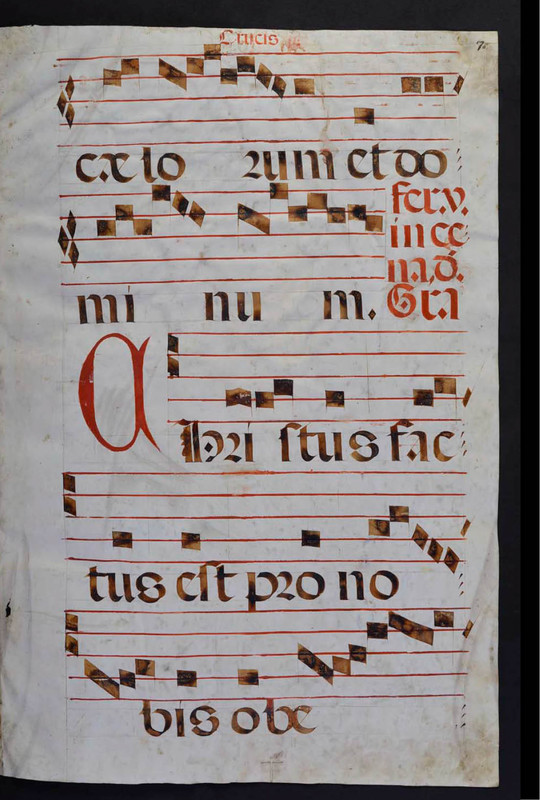 Crucis
7
cæ lo rum et do
mi nu m.
fer. v.
in ce
na, d.
Gra
Chri stus fac
tus est pro no
bis obe